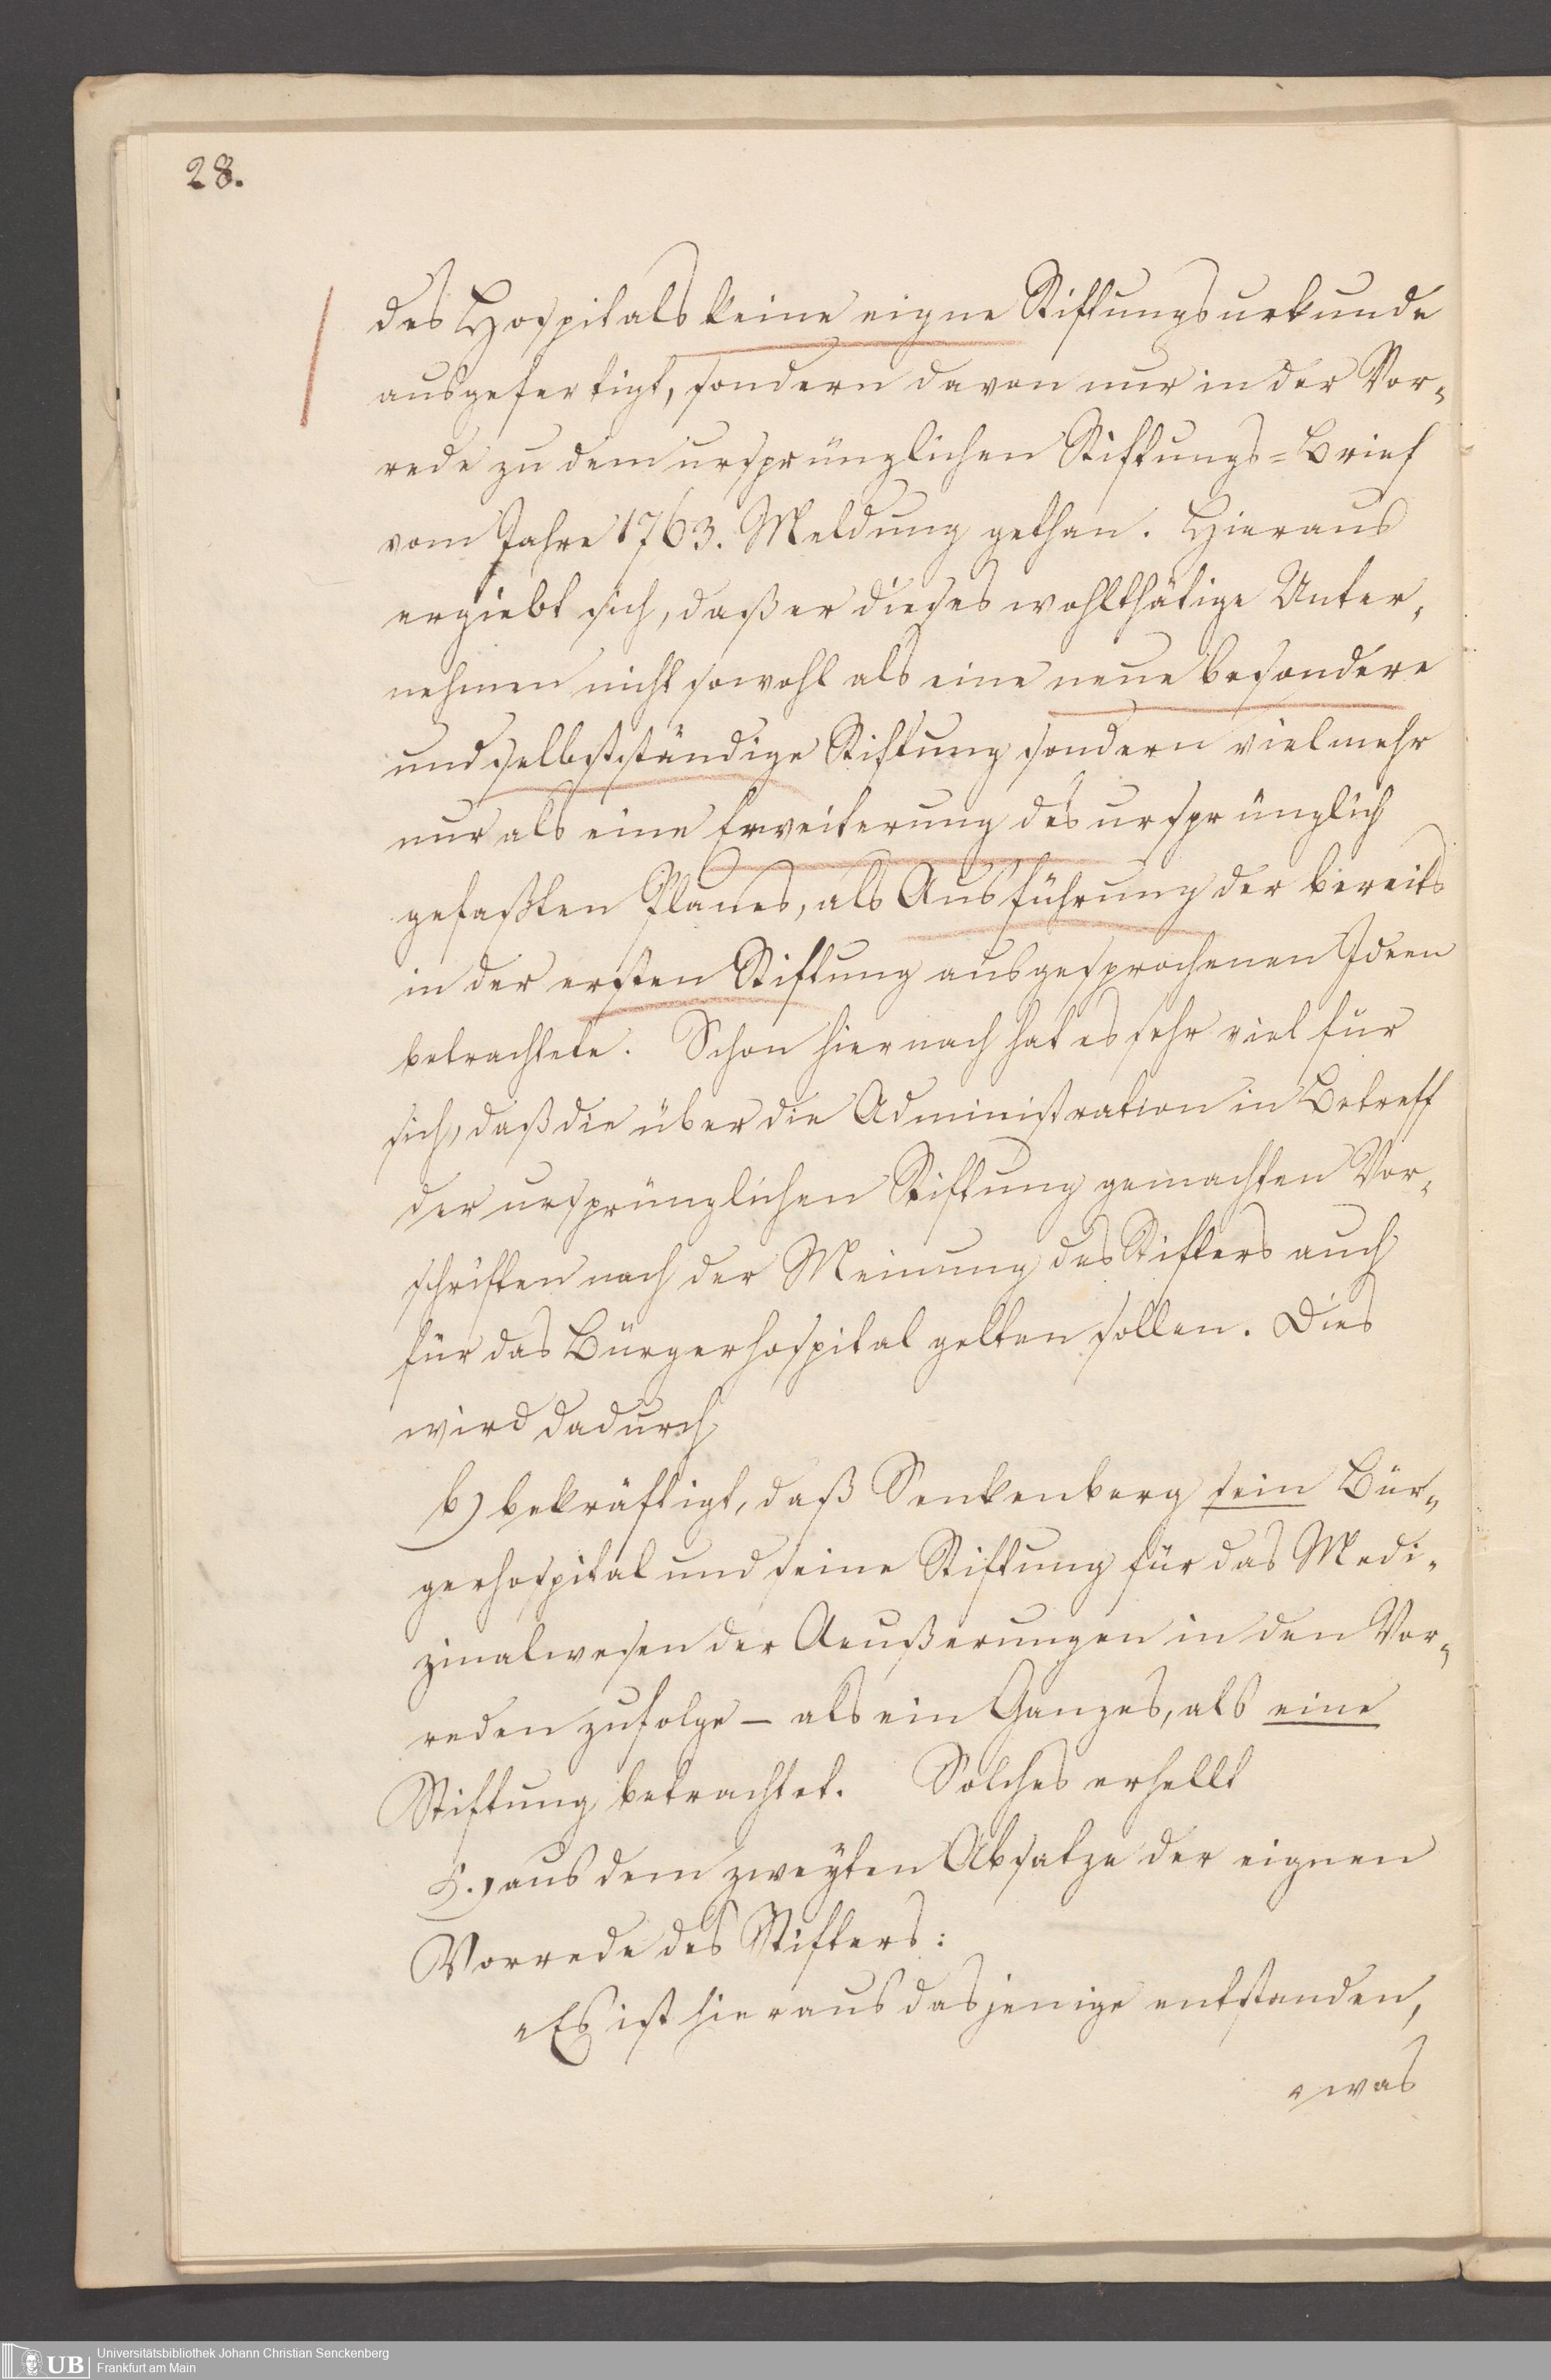 28.
des Hospitals keine eigne Stiftungsurkunde
ausgefertigt, sondern davon nur in der Vor-
rede zu dem ursprünglichen Stiftungs=Brief
vom Jahre 1763. Meldung gethan. Hieraus
ergiebt sich, daß er dieses wohlthätige Unter-
nehmen nicht sowohl als eine neue besondere
und selbstständige Stiftung sondern vielmehr
nur als eine Erweiterung des ursprünglich
gefaßten Planes, als Ausführung der bereits
in der ersten Stiftung ausgesprochenen Ideen
betrachtete. Schon hiernach hat es sehr viel für
sich, daß die über die Administration in Betreff
der ursprünglichen Stiftung gemachten Vor-
schriften nach der Meinung des Stifters auch
für das Bürgerhospital gelten sollen. Dies
wird dadurch
b) bekräftigt, daß Senkenberg sein Bür-
gerhospital und seine Stiftung für das Medi-
zinalwesen der Aeußerungen in den Vor-
reden zufolge – als ein Ganzes, als eine
Stiftung betrachtet. Solches erhellt
aus dem zweyten Absatze der eignen
Vorrede des Stifters:
"Es ist hieraus dasjenige entstanden,
"was
Universitätsbibliothek Johann Christian Senckenberg
Frankfurt am Main
UB